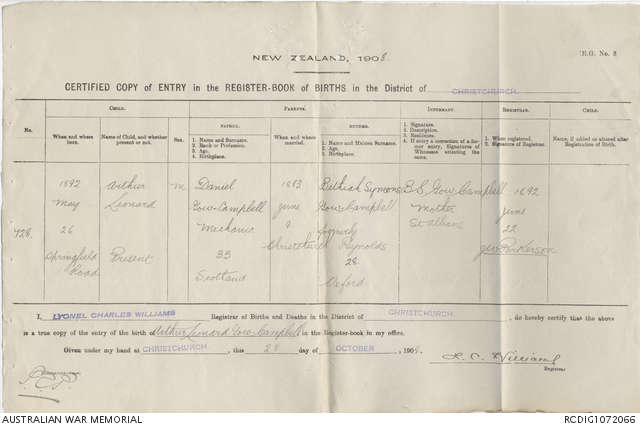 R.G. No. 3
NEW ZEALAND, 1908.
CERTIFIED COPY of ENTRY in the REGISTER-BOOK of BIRTHS in the District of CHRISTCHURCH.
CHILD. PARENTS. INFORMANT. REGISTRAR. CHILD.
No.
When and where born.
Name of Child, and whether present or not.
Sex.
FATHER.
1. Name and Surname.
2. Rank or Profession.
3. Age.
4. Birthplace.
When and where married.
MOTHER.
1. Name and Maiden Surname.
2. Age.
3. Birthplace.
1. Signature.
2. Description.
3. Residence.
4. If entry a correction of a former entry, Signatures of Witnesses attesting the same.
1. When registered.
2. Signature of Registrar.
Name, if added or altered after Registration of Birth.
728
1892
May
26
Springfield
Road
Arthur
Leonard
Present
M
Daniel
Gow-Campbell
Mechanic
35
Scotland
1883
June
9
Christchurch
Symons
Gow-Campbell
formerly
Reynolds
28
Oxford
B.S. Gow-Campbell
Mother
St Albans
1892
June
22
Parkerson
I, LYONEL CHARLES WILLIAMS Registrar of Births and Deaths in the District of CHRISTCHURCH, do hereby certify that the above
is a true copy of the entry of the birth of Arthur Leonard Gow-Campbell in the Register-book in my office.
Given under my hand at CHRISTCHURCH, this 28 day of OCTOBER, 1908.
L. C. Williams
Registrar
AUSTRALIAN WAR MEMORIAL
RCDIG1072066